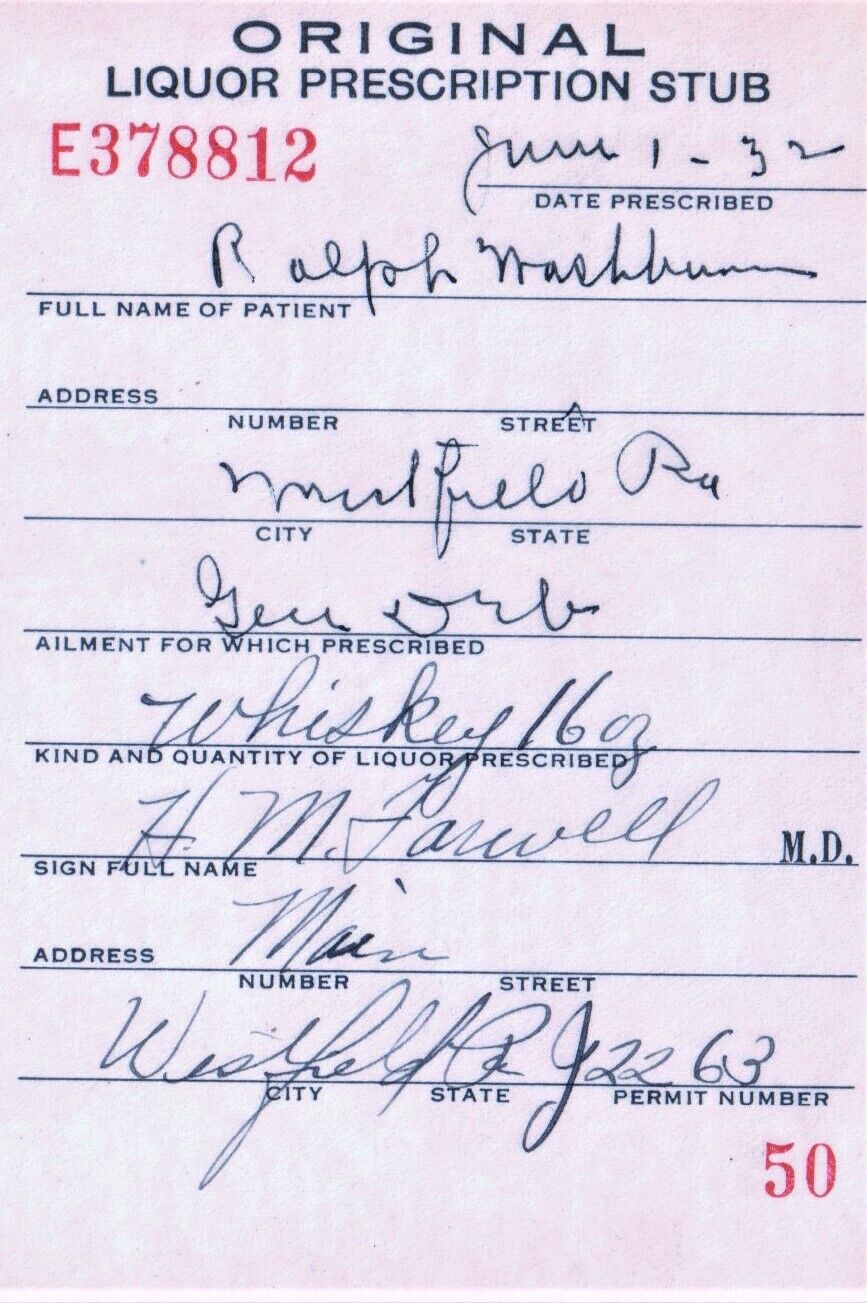 ORIGINAL
LIQUOR PRESCRIPTION STUB
E378812
June 1 - 32
DATE PRESCRIBED
Ralph Washburn
FULL NAME OF PATIENT
ADDRESS
NUMBER STREET
Westfield Pa
CITY STATE
Gen Deb
AILMENT FOR WHICH PRESCRIBED
Whiskey 16 oz
KIND AND QUANTITY OF LIQUOR PRESCRIBED
H. M. Farwell M.D.
SIGN FULL NAME
ADDRESS Main
NUMBER STREET
Westfield Pa J2263
CITY STATE PERMIT NUMBER
50